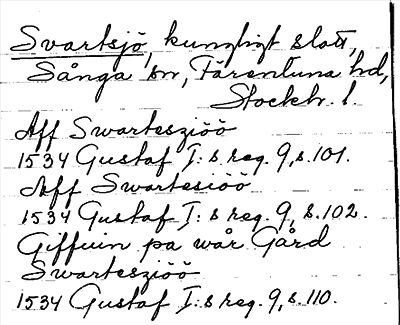 Svartsjö, kungligt slott,
Sånga sn, Färentuna hd,
Stockh. l.
Aff Swartesziöö
1534 Gustaf I:s reg. 9, s. 101.
Aff Swartesiöö
1534 Gustaf I:s reg. 9, s. 102.
Giffuin pa wår Gård
Swartesziöö
1534 Gustaf I:s reg. 9, s. 110.